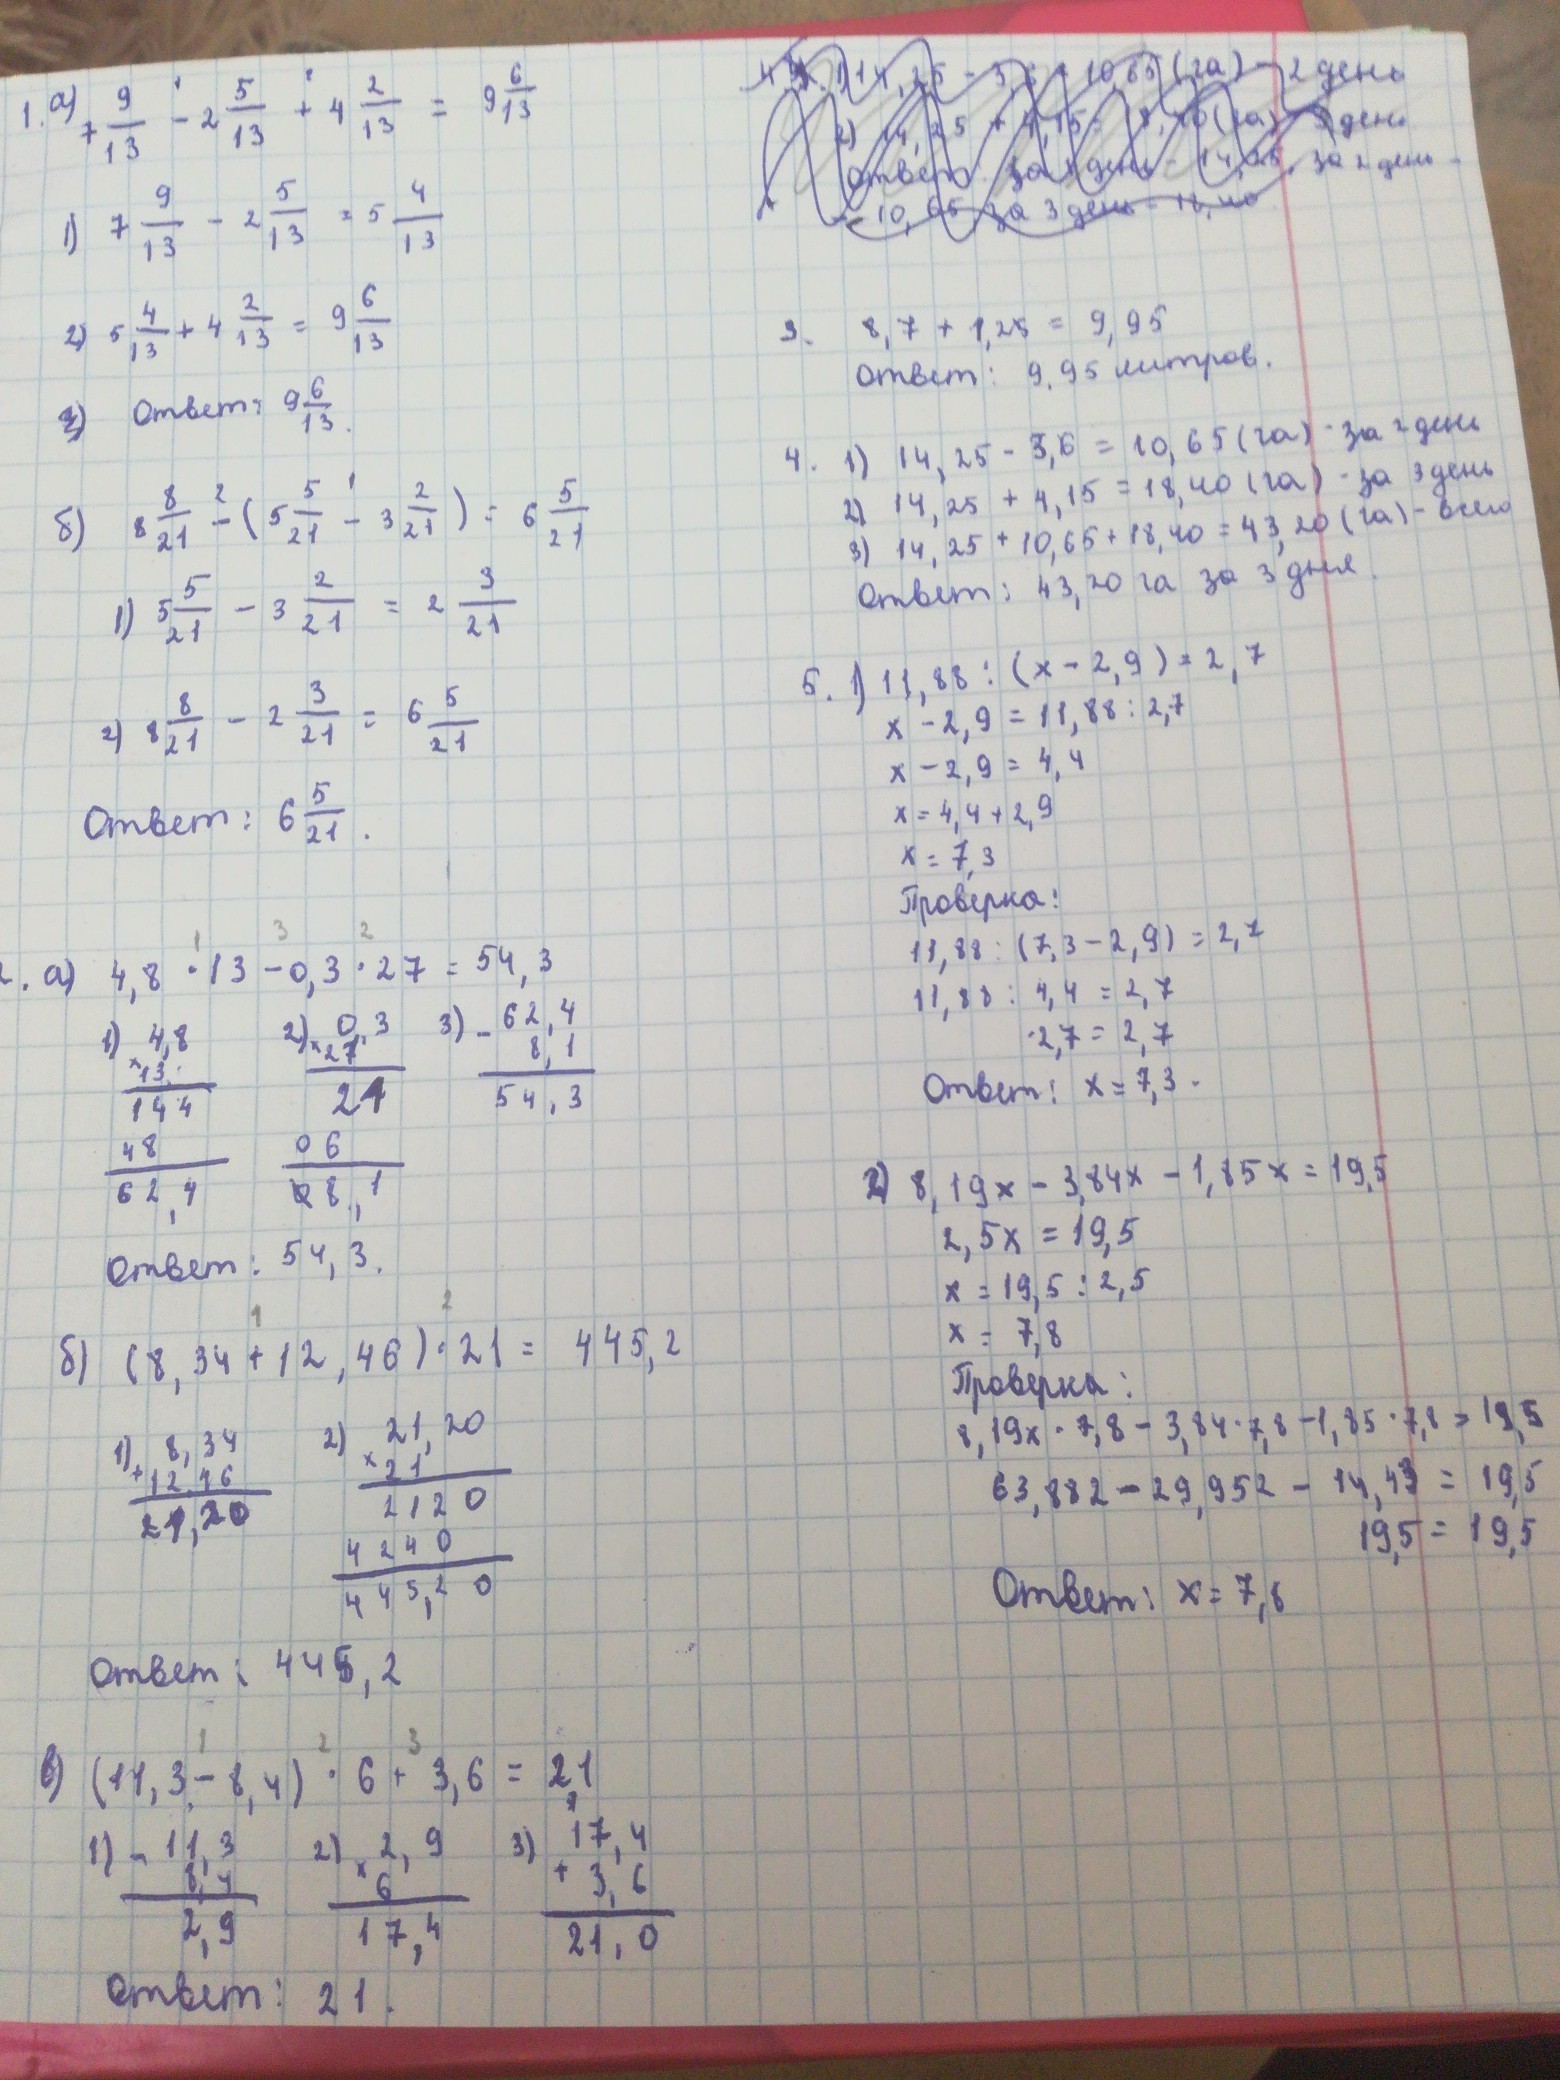 1. а) 7 9/13 - 2 5/13 + 4 2/13 = 9 6/13
1) 7 9/13 - 2 5/13 = 5 4/13
2) 5 4/13 + 4 2/13 = 9 6/13
3) Ответ: 9 6/13.
б) 8 8/21 - (5 5/21 - 3 2/21) = 6 5/21
1) 5 5/21 - 3 2/21 = 2 3/21
2) 8 8/21 - 2 3/21 = 6 5/21
Ответ: 6 5/21.
2. а) 4,8 · 13 - 0,3 · 27 = 54,3
1) 4,8 2) 0,3 3) - 62,4
× 13 × 27 8,1
144 21 54,3
48 06
62,4 08,1
Ответ: 54,3.
б) (8,34 + 12,46) · 21 = 445,2
1) 8,34 2) 21,20
+ 12.46 × 21
21,20 2120
4240
445,20
Ответ: 445,2
в) (11,3 - 8,4) · 6 + 3,6 = 21
1) - 11,3 2) 2,9 3) 17,4
8,4 × 6 + 3,6
2,9 17,4 21,0
Ответ: 21.
1) 14,25 - 3,6 = 10,65 (га) - 2 день
2) 14,25 + 4,15 = 18,40 (га) - 3 день
Ответ: за 1 день - 14,25, за 2 день -
- 10,65 за 3 день - 18,40
3. 8,7 + 1,25 = 9,95
Ответ: 9,95 литров.
4. 1) 14,25 - 3,6 = 10,65 (га) - за 2 день
2) 14,25 + 4,15 = 18,40 (га) - за 3 день
3) 14,25 + 10,65 + 18,40 = 43,20 (га) - всего
Ответ: 43,20 га за 3 дня.
5. 1) 11,88 : (x - 2,9) = 2,7
x - 2,9 = 11,88 : 2,7
x - 2,9 = 4,4
x = 4,4 + 2,9
x = 7,3
Проверка:
11,88 : (7,3 - 2,9) = 2,7
11,88 : 4,4 = 2,7
2,7 = 2,7
Ответ: x = 7,3.
2) 8,19x - 3,84x - 1,85x = 19,5
2,5x = 19,5
x = 19,5 : 2,5
x = 7,8
Проверка:
8,19x · 7,8 - 3,84 · 7,8 - 1,85 · 7,8 = 19,5
63,882 - 29,952 - 14,43 = 19,5
19,5 = 19,5
Ответ: x = 7,8